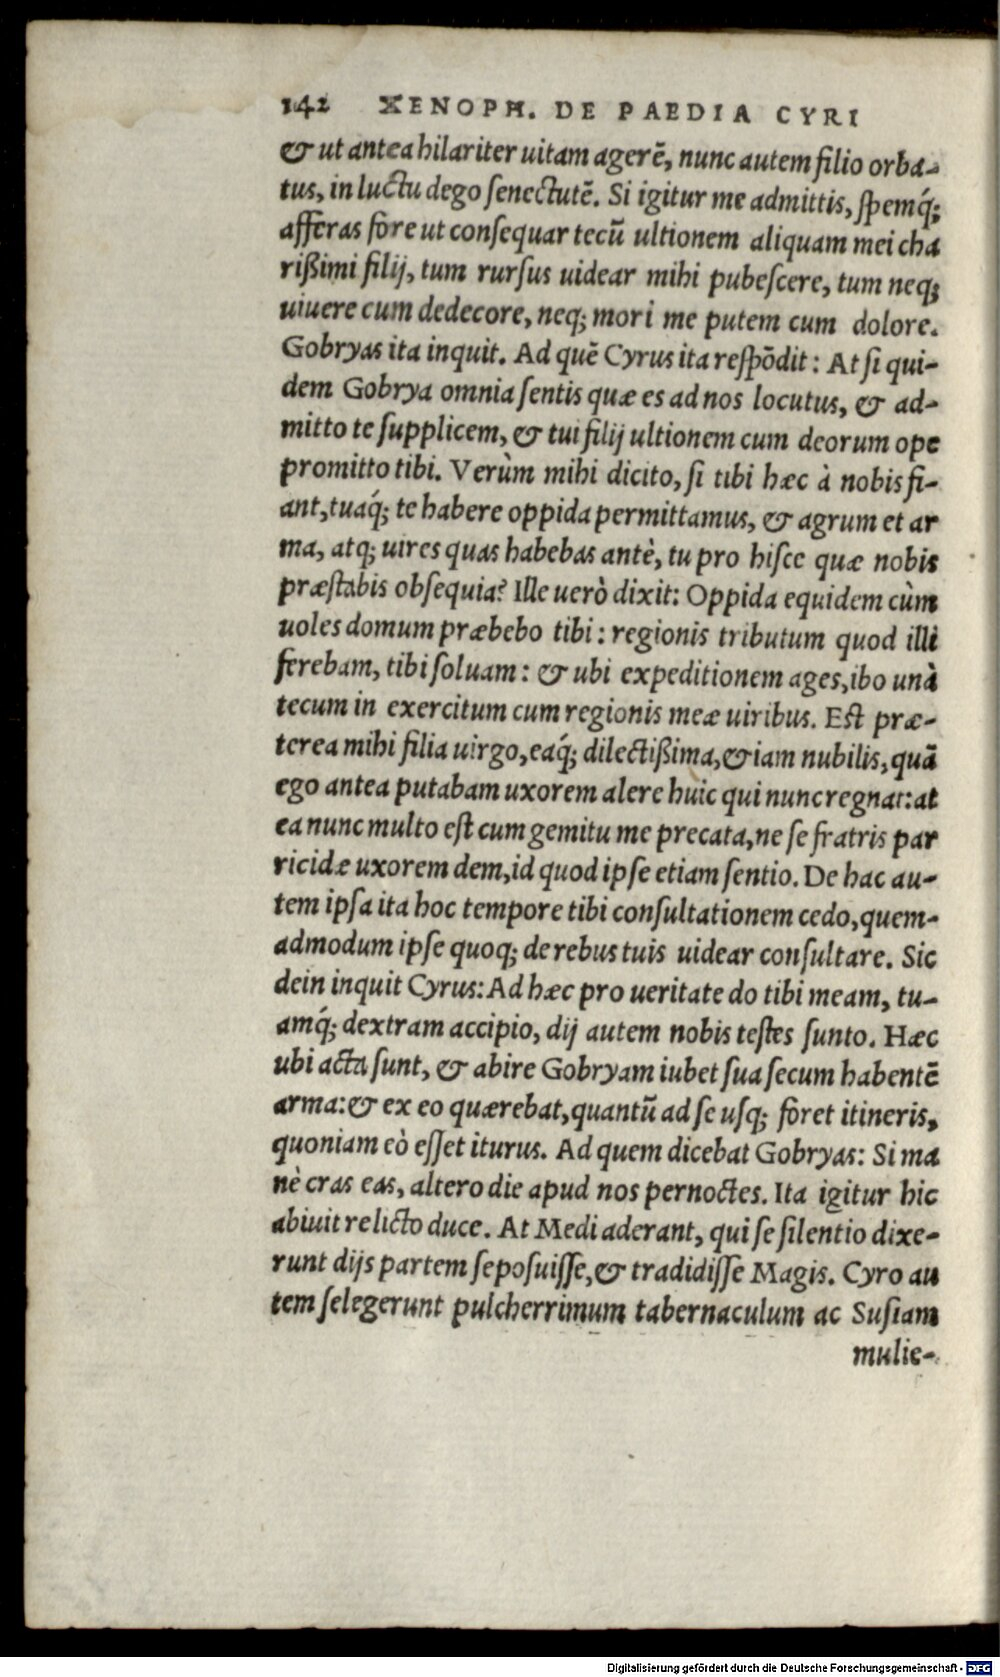 142 XENOPH. DE PAEDIA CYRI
& ut antea hilariter uitam agerē, nunc autem filio orba-
tus, in luctu dego ſenectutē. Si igitur me admittis, ſpemq́;
afferas fore ut conſequar tecū ultionem aliquam mei cha
rißimi filij, tum rurſus uidear mihi pubeſcere, tum neq;
uiuere cum dedecore, neq; mori me putem cum dolore.
Gobryas ita inquit. Ad quē Cyrus ita reſpōdit: At ſi qui-
dem Gobrya omnia ſentis quæ es ad nos locutus, & ad-
mitto te ſupplicem, & tui filij ultionem cum deorum ope
promitto tibi. Verùm mihi dicito, ſi tibi hæc à nobis fi-
ant, tuaq́; te habere oppida permittamus, & agrum et ar
ma, atq; uires quas habebas antè, tu pro hiſce quæ nobis
præſtabis obſequia? Ille uerò dixit: Oppida equidem cùm
uoles domum præbebo tibi: regionis tributum quod illi
ferebam, tibi ſoluam: & ubi expeditionem ages, ibo unà
tecum in exercitum cum regionis meæ uiribus. Eſt præ-
terea mihi filia uirgo, eaq́; dilectißima, & iam nubilis, quā
ego antea putabam uxorem alere huic qui nunc regnat: at
ea nunc multo eſt cum gemitu me precata, ne ſe fratris par
ricidæ uxorem dem, id quod ipſe etiam ſentio. De hac au-
tem ipſa ita hoc tempore tibi conſultationem cedo, quem-
admodum ipſe quoq; de rebus tuis uidear conſultare. Sic
dein inquit Cyrus: Ad hæc pro ueritate do tibi meam, tu-
amq́; dextram accipio, dij autem nobis teſtes ſunto. Hæc
ubi acta ſunt, & abire Gobryam iubet ſua ſecum habentē
arma: & ex eo quærebat, quantū ad ſe uſq; foret itineris,
quoniam eò eſſet iturus. Ad quem dicebat Gobryas: Si ma
nè cras eas, altero die apud nos pernoctes. Ita igitur hic
abiuit relicto duce. At Medi aderant, qui ſe ſilentio dixe-
runt dijs partem ſepoſuiſſe, & tradidiſſe Magis. Cyro au
tem ſelegerunt pulcherrimum tabernaculum ac Suſiam
mulie-
Digitalisierung gefördert durch die Deutsche Forschungsgemeinschaft - DFG